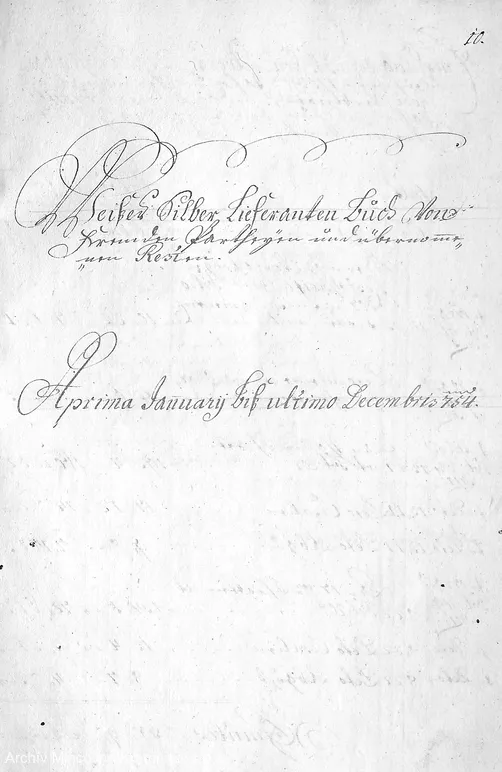 10.
Weißer Silber Lieferanten Buch Von
Fremden Partheyen und übernomme„
„nen Resten.
A prima January biß ultimo Decembris 754.